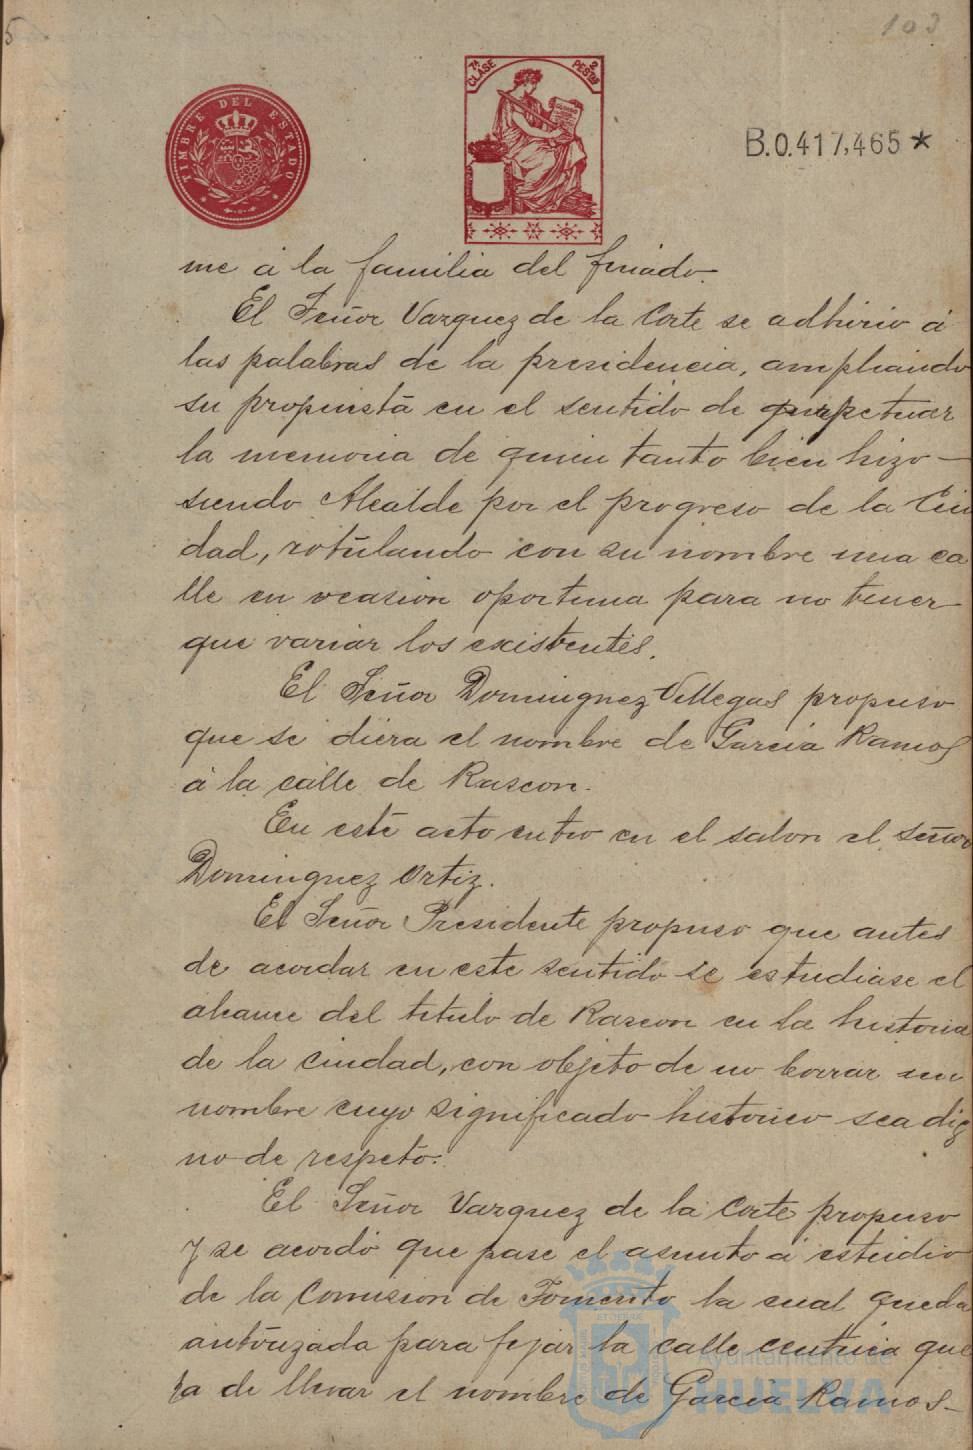 103
5
TIMBRE DEL ESTADO
7ª CLASE
2 PESTAS
B.0.417,465*
me á la familia del finado.
El Señor Vazquez de la Corte se adhirio á
las palabras de la presidencia, ampliando
su propuesta en el sentido de perpetuar
la memoria de quien tanto bien hizo
siendo Alcalde por el progreso de la Ciu
dad, rotulando con su nombre una ca
lle en ocasion oportuna para no tener
que variar los existentes.
El Señor Dominguez Villegas propuso
que se diera el nombre de Garcia Ramos
á la calle de Rascon.
En este acto entro en el salon el Señor
Dominguez Ortiz.
El Señor Presidente propuso que antes
de acordar en este sentido se estudiase el
alcance del titulo de Rascon en la historia
de la ciudad, con objeto de no borrar un
nombre cuyo significado historico sea dig
no de respeto.
El Señor Vazquez de la Corte propuso
y se acordó que pase el asunto á estudio
de la Comision de Fomento la cual queda
autorizada para fijar la calle centrica que
ha de llevar el nombre de Garcia Ramos.
Ayuntamiento de
HUELVA